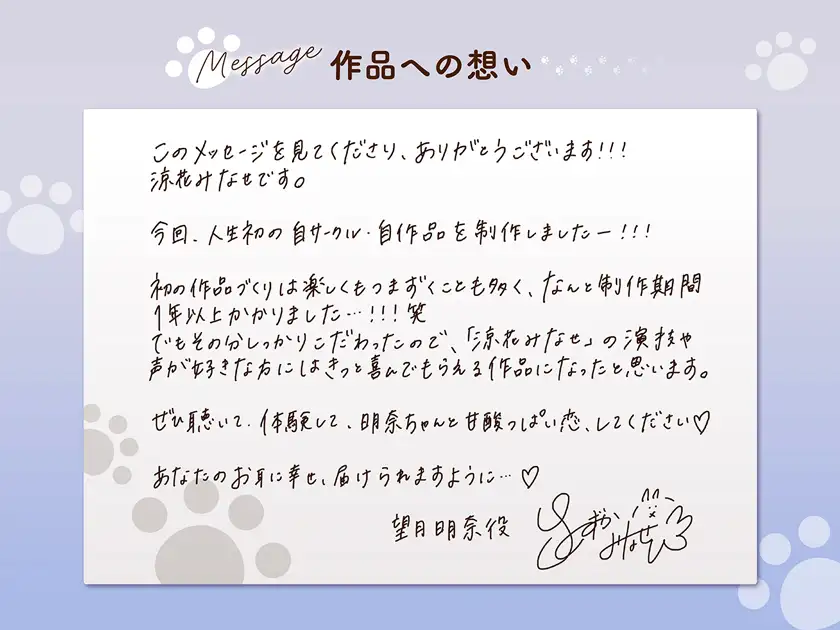 Message 作品への想い
このメッセージを見てくださり、ありがとうございます!!!
涼花みなせです。
今回、人生初の自サークル・自作品を制作しましたー!!!
初の作品づくりは楽しくもつまずくことも多く、なんと制作期間
1年以上かかりました…!!!笑
でもその分しっかりこだわったので、「涼花みなせ」の演技や
声が好きな方にはきっと喜んでもらえる作品になったと思います。
ぜひ聴いて、体験して、明奈ちゃんと甘酸っぱい恋、してください♡
あなたのお耳に幸せ、届けられますように…♡
望月明奈役 すずか みなせ